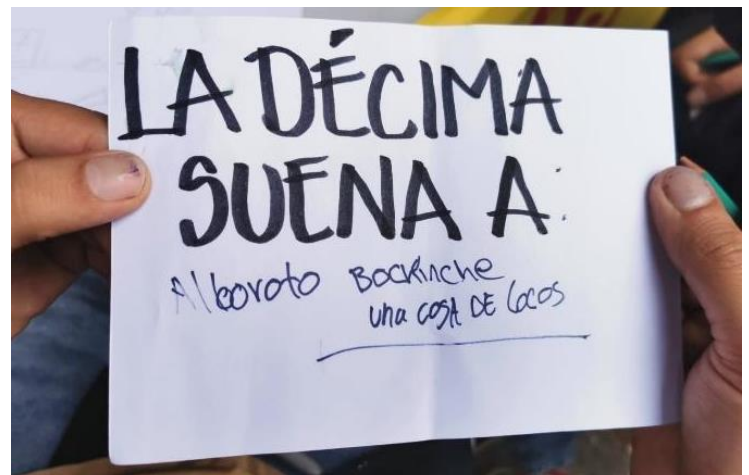 LA DÉCIMA
SUENA A:
Alboroto Bochinche
una cosa DE locos